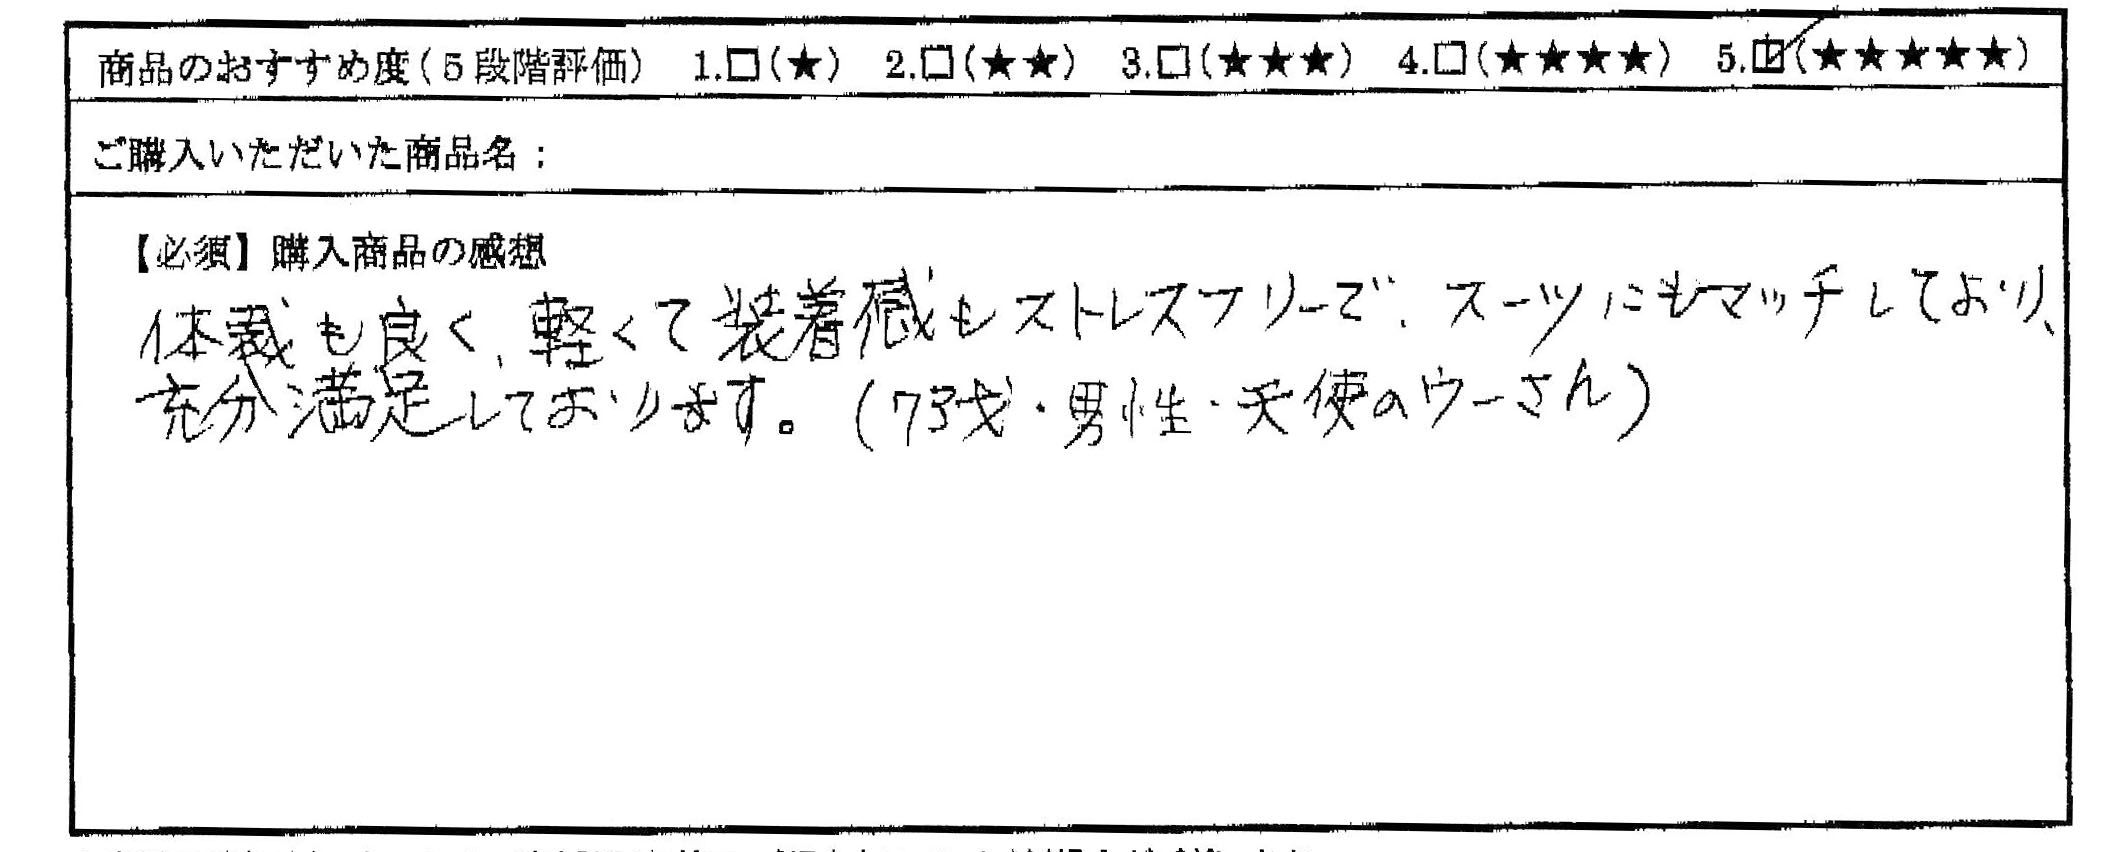 商品のおすすめ度(5段階評価) 1.□(★) 2.□(★★) 3.□(★★★) 4.□(★★★★) 5.☑(★★★★★)
ご購入いただいた商品名:
【必須】購入商品の感想
体裁も良く、軽くて装着感もストレスフリーで、スーツにもマッチしており、
充分満足しております。(73才・男性・天使のウーさん)